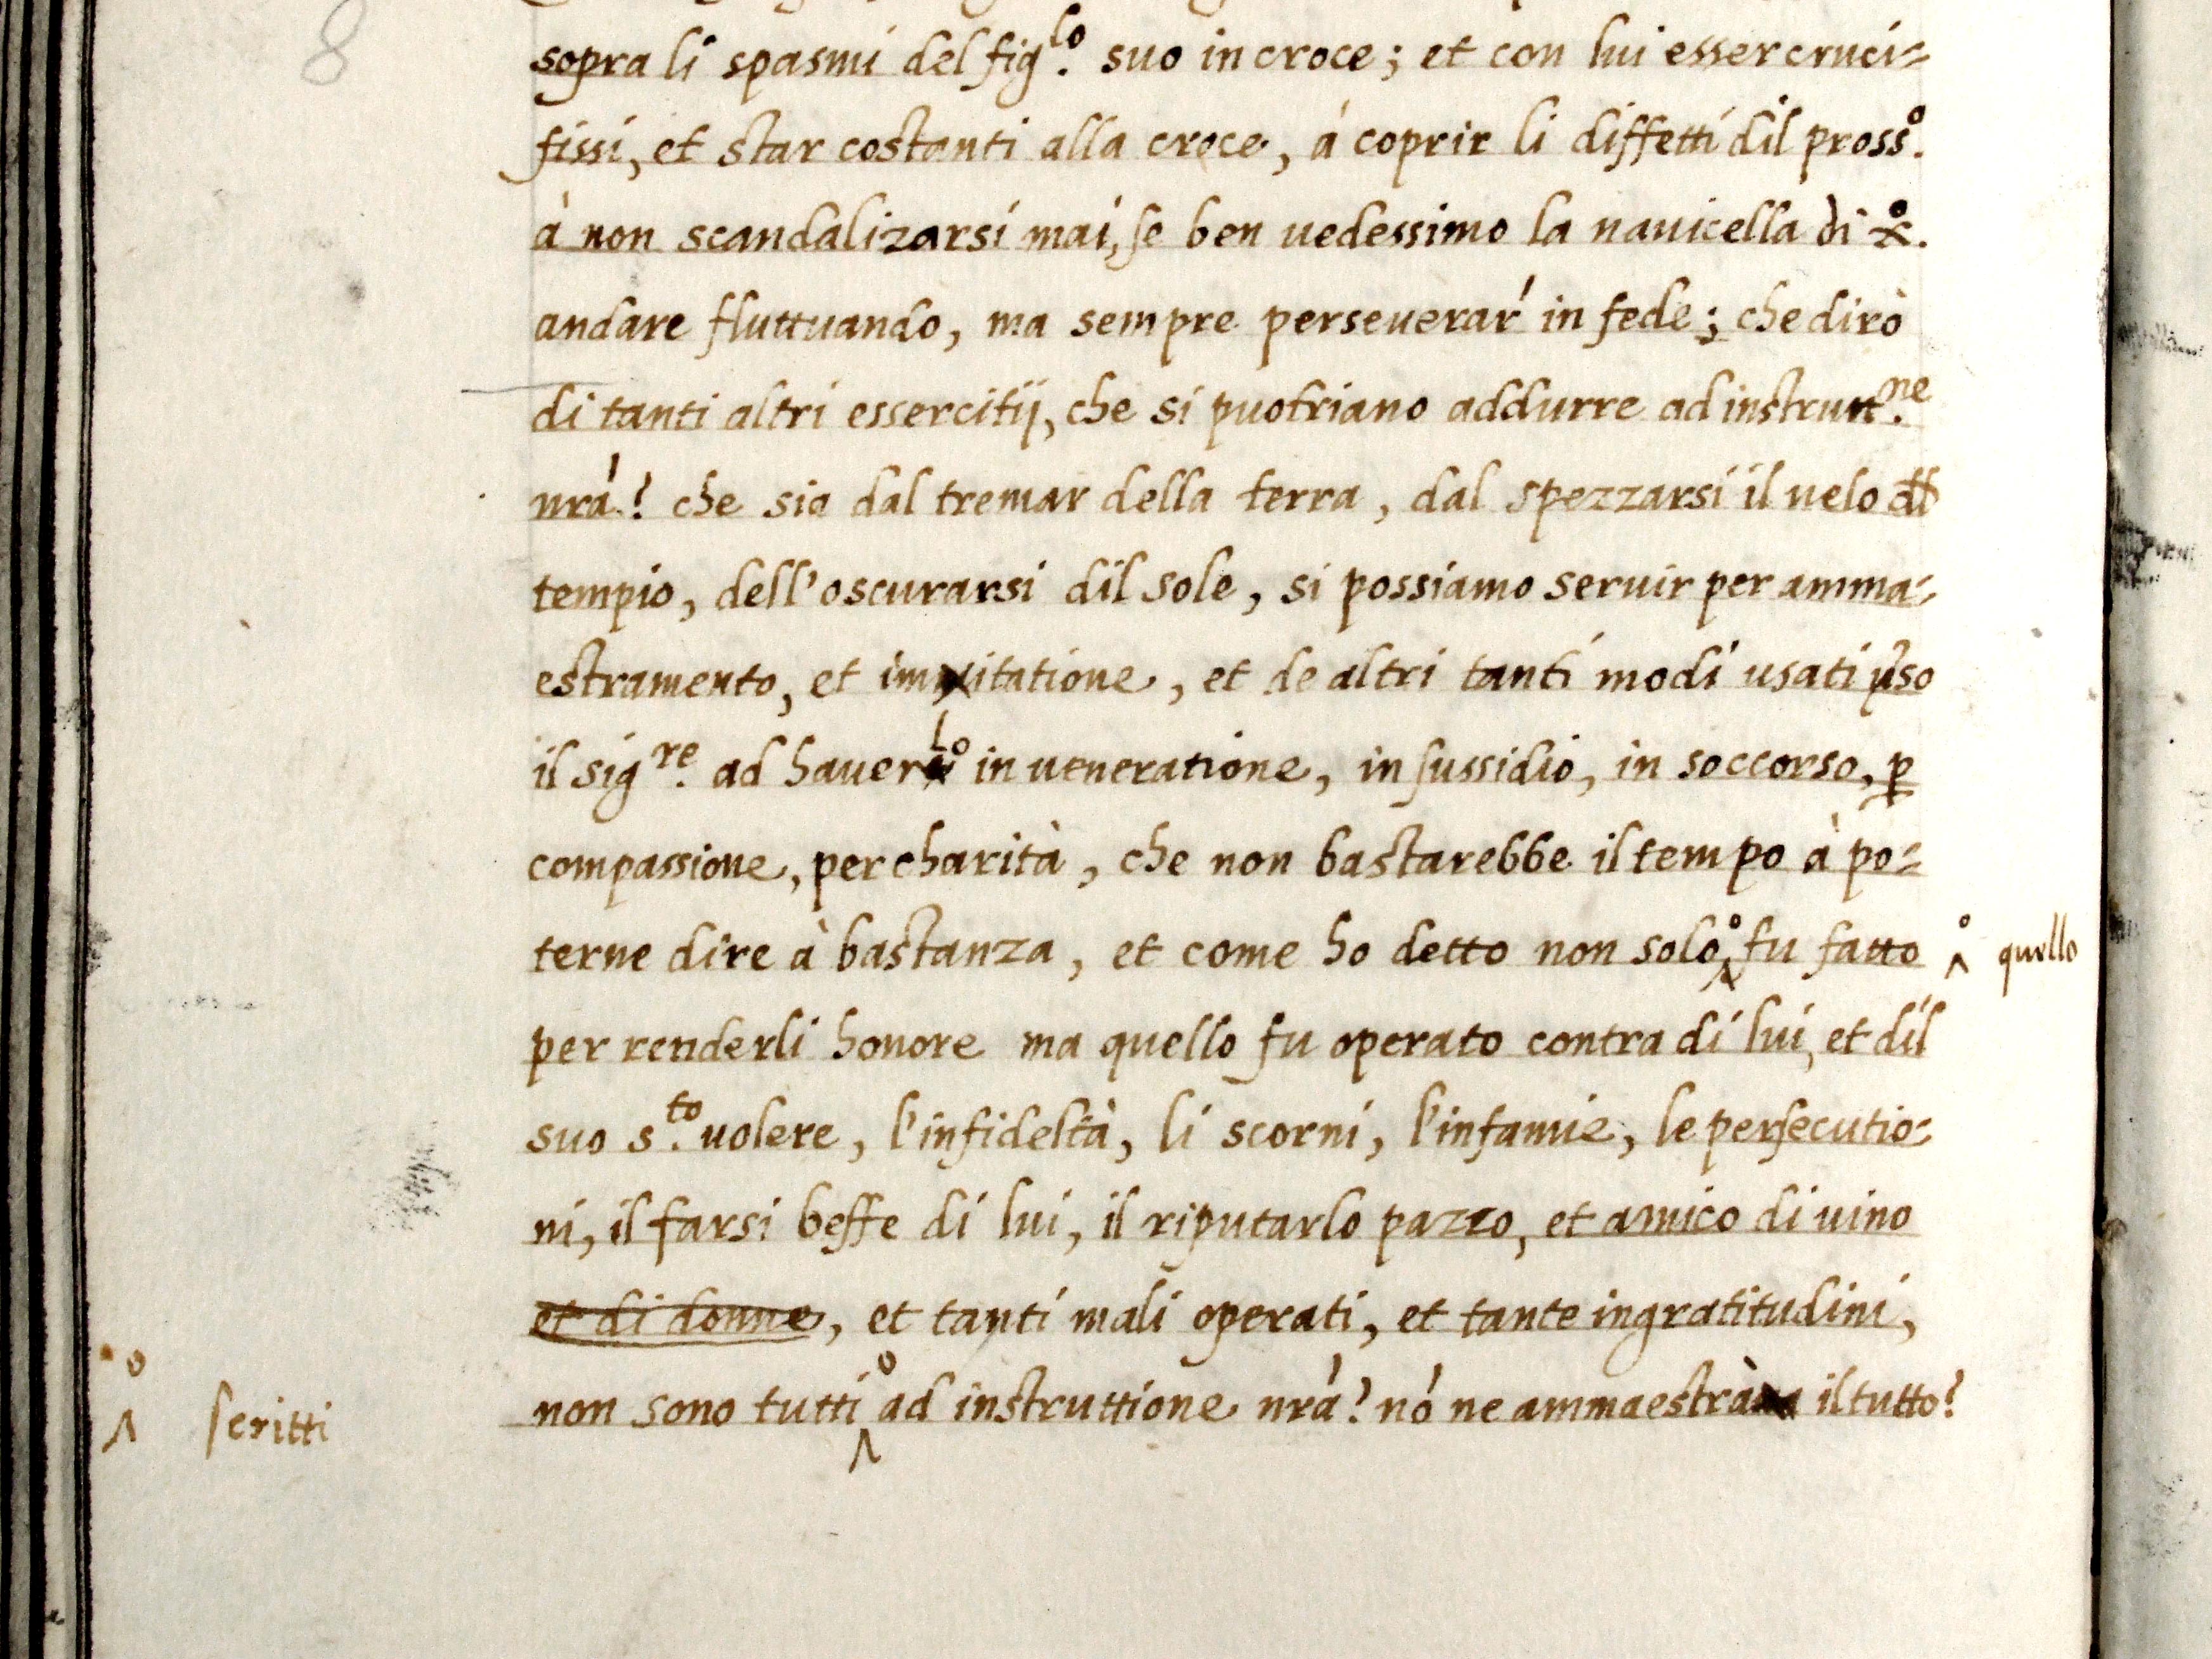 8
sopra li spasmi del fig.lo suo in croce; et con lui esser cruci=
fissi, et star costanti alla croce, à coprir li diffetti dil pross.o
à non scandalizarsi mai, se ben uedessimo la nauicella di
andare fluttuando, ma sempre perseuerar' in fede; che dirò
di tanti altri essercitij, che si puotriano addurre ad instrutt.ne
nrá? che sia dal tremar della terra, dal spezzarsi il uelo
tempio, dell'oscurarsi dil sole, si possiamo seruir per amma=
estramento, et imitatione, et de altri tanti modi usati
il sig.re ad hauerlo in ueneratione, in sussidio, in soccorso, p
compassione, per charità, che non bastarebbe il tempo à po=
terne dire à bastanza, et come ho detto non solo fu fatto ^ quello
per renderli honore ma quello fu operato contra di lui, et dil
suo s.to uolere, l'infideltà, li scorni, l'infamie, le persecutio=
ni, il farsi beffe di lui, il riputarlo pazzo, et amico di uino
et di donne, et tanti mali operati, et tante ingratitudini,
^ scritti
non sono tutti ^ ad instruttione nrá? nó ne ammaestrà il tutto?